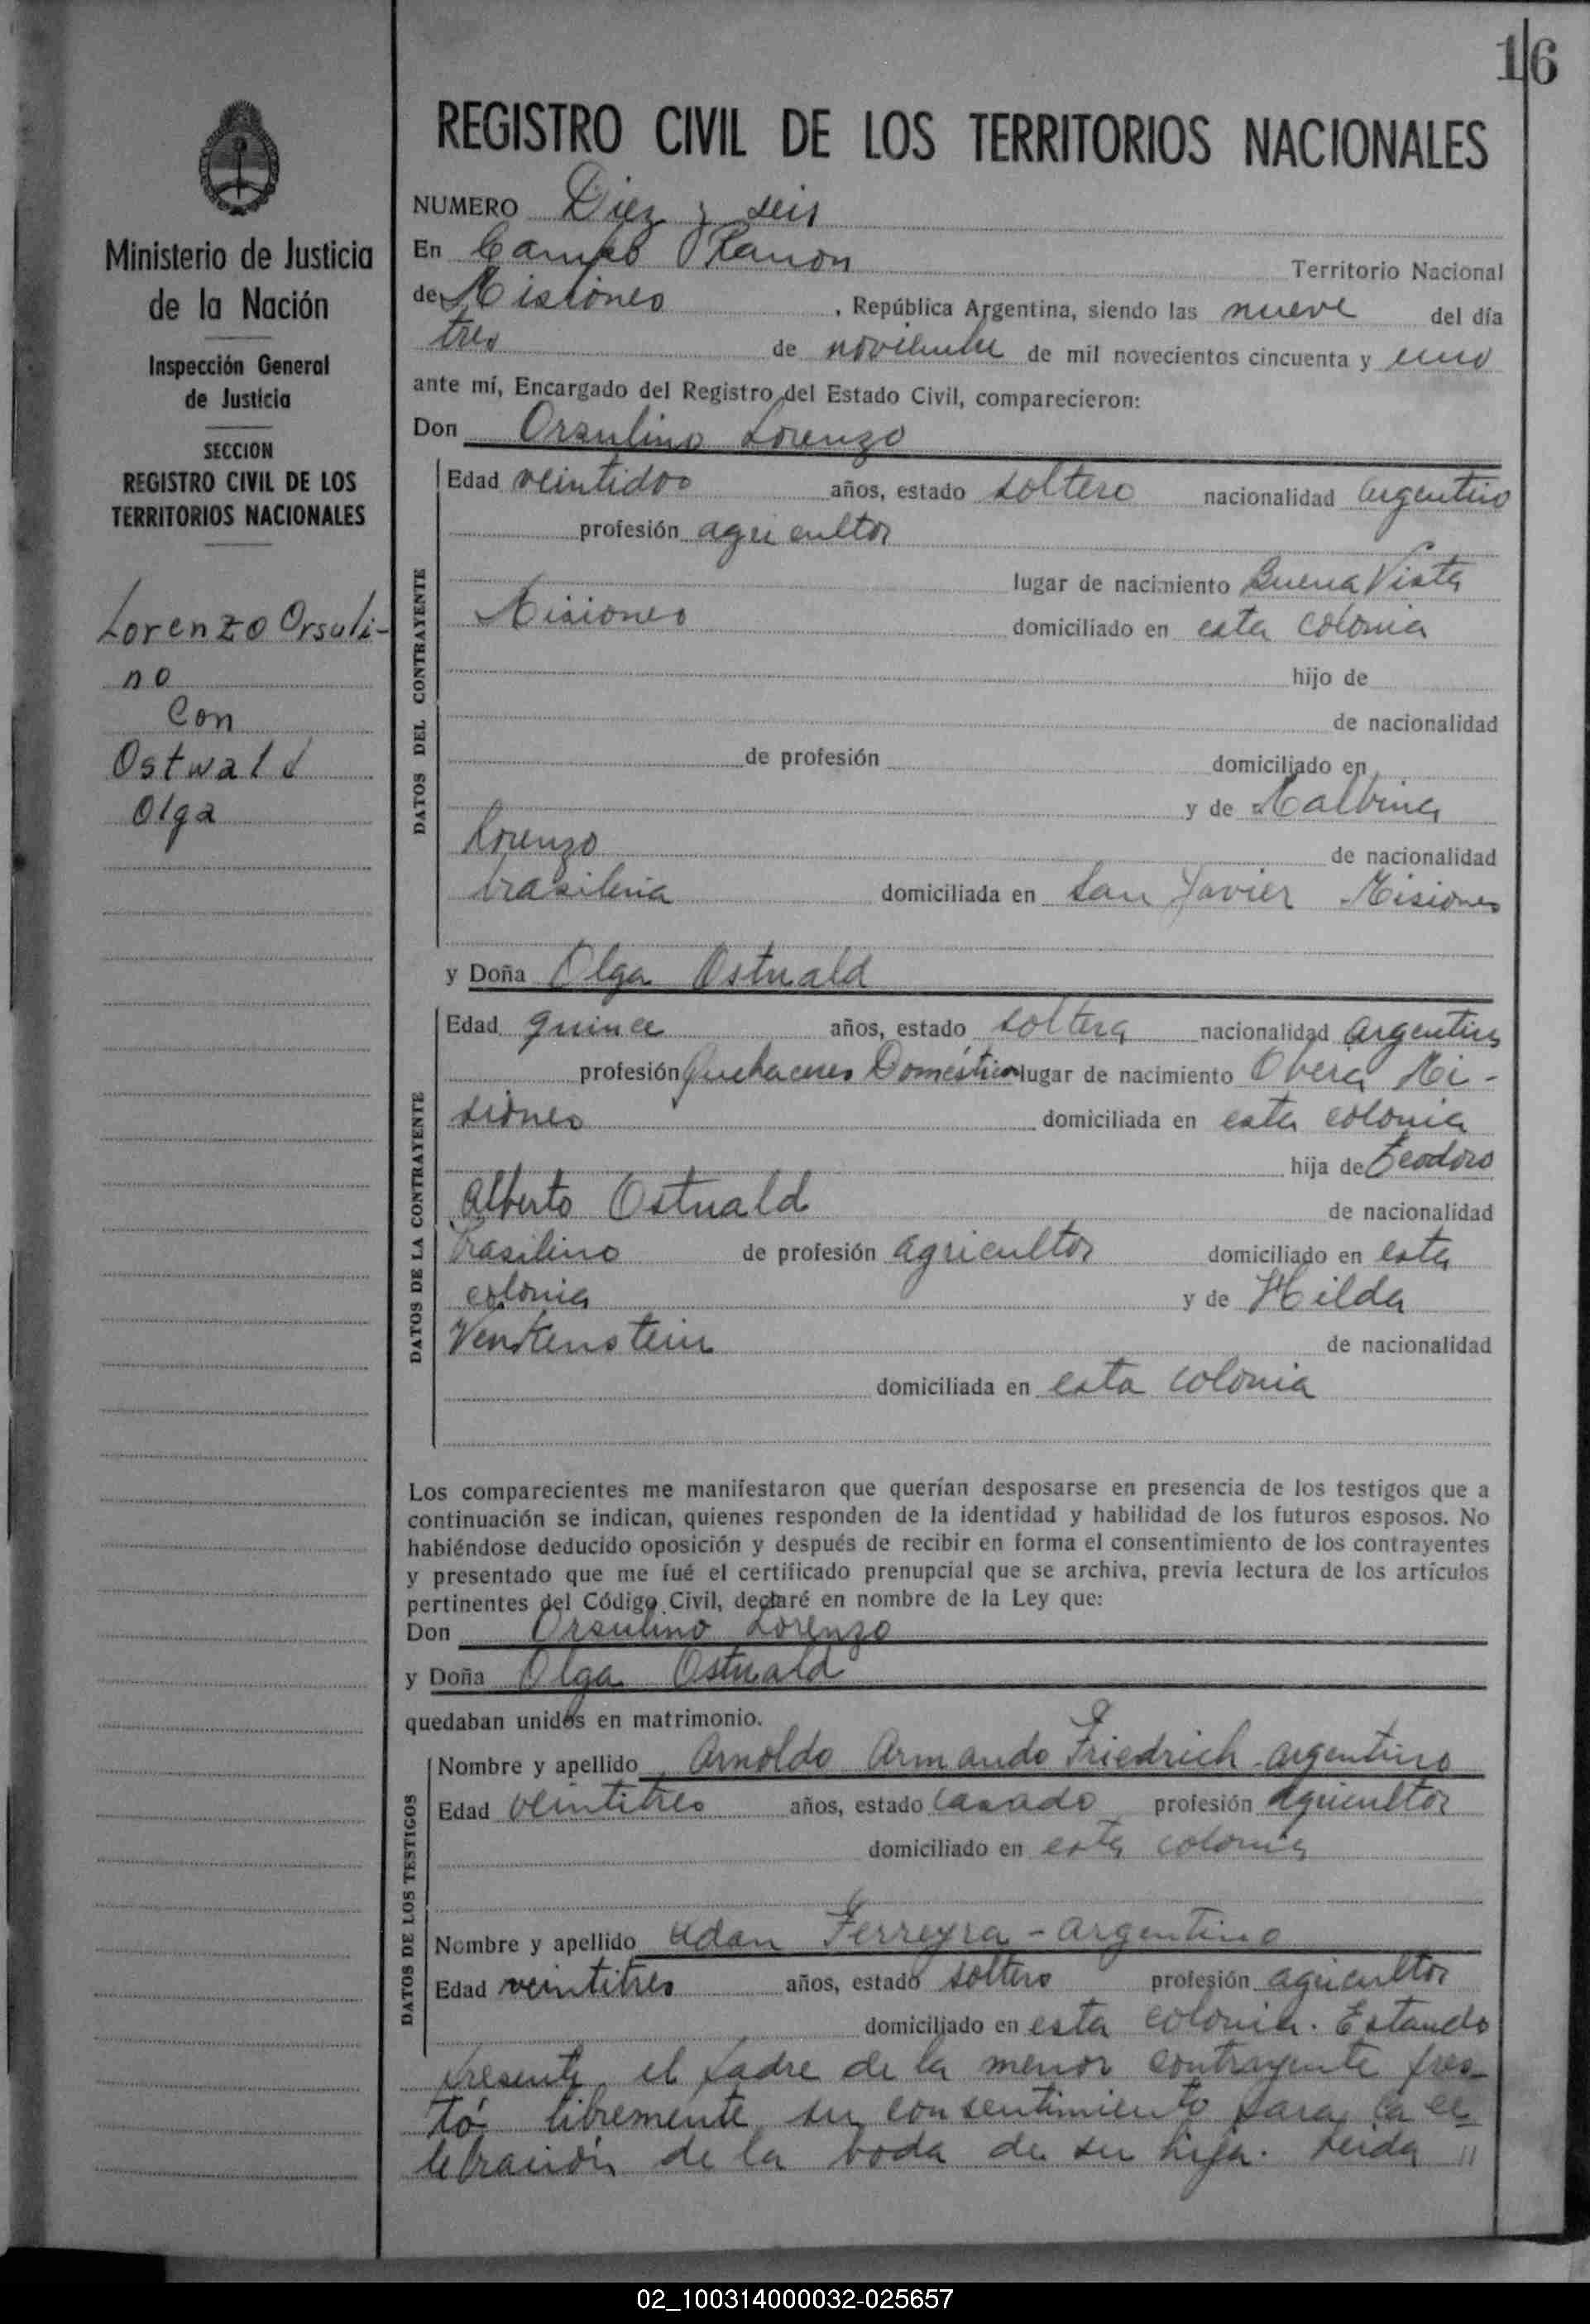 16
REGISTRO CIVIL DE LOS TERRITORIOS NACIONALES
Ministerio de Justicia
de la Nación
Inspección General
de Justicia
SECCION
REGISTRO CIVIL DE LOS
TERRITORIOS NACIONALES
Lorenzo Orsuli-
no
Con
Ostwald
Olga
NUMERO Diez y seis
En Campo Ramon Territorio Nacional
de Misiones, República Argentina, siendo las nueve del día
tres de noviembre de mil novecientos cincuenta y uno
ante mí, Encargado del Registro del Estado Civil, comparecieron:
Don Orsulino Lorenzo
DATOS DEL CONTRAYENTE
Edad veintidos años, estado soltero nacionalidad argentino
profesión agricultor
lugar de nacimiento Buena Vista
Misiones domiciliado en esta colonia
hijo de
de nacionalidad
de profesión domiciliado en
y de Malbina
Lorenzo de nacionalidad
brasileña domiciliada en San Javier Misiones
y Doña Olga Ostwald
DATOS DE LA CONTRAYENTE
Edad quince años, estado soltera nacionalidad argentina
profesión Quehaceres Domésticos lugar de nacimiento Oberá Mi-
siones domiciliada en esta colonia
hija de Teodoro
Alberto Ostwald de nacionalidad
brasilino de profesión agricultor domiciliado en esta
colonia y de Hilda
Venkenstein de nacionalidad
domiciliada en esta colonia
Los comparecientes me manifestaron que querían desposarse en presencia de los testigos que a
continuación se indican, quienes responden de la identidad y habilidad de los futuros esposos. No
habiéndose deducido oposición y después de recibir en forma el consentimiento de los contrayentes
y presentado que me fué el certificado prenupcial que se archiva, previa lectura de los artículos
pertinentes del Código Civil, declaré en nombre de la Ley que:
Don Orsulino Lorenzo
y Doña Olga Ostwald
quedaban unidos en matrimonio.
DATOS DE LOS TESTIGOS
Nombre y apellido Arnoldo Armando Friedrich - argentino
Edad veintitres años, estado casado profesión agricultor
domiciliado en esta colonia
Nombre y apellido Adan Ferreyra - argentino
Edad veintitres años, estado soltero profesión agricultor
domiciliado en esta colonia. Estando
presente el padre de la menor contrayente pres-
tó libremente su consentimiento para la ce-
lebración de la boda de su hija. Leida "
02_100314000032-025657